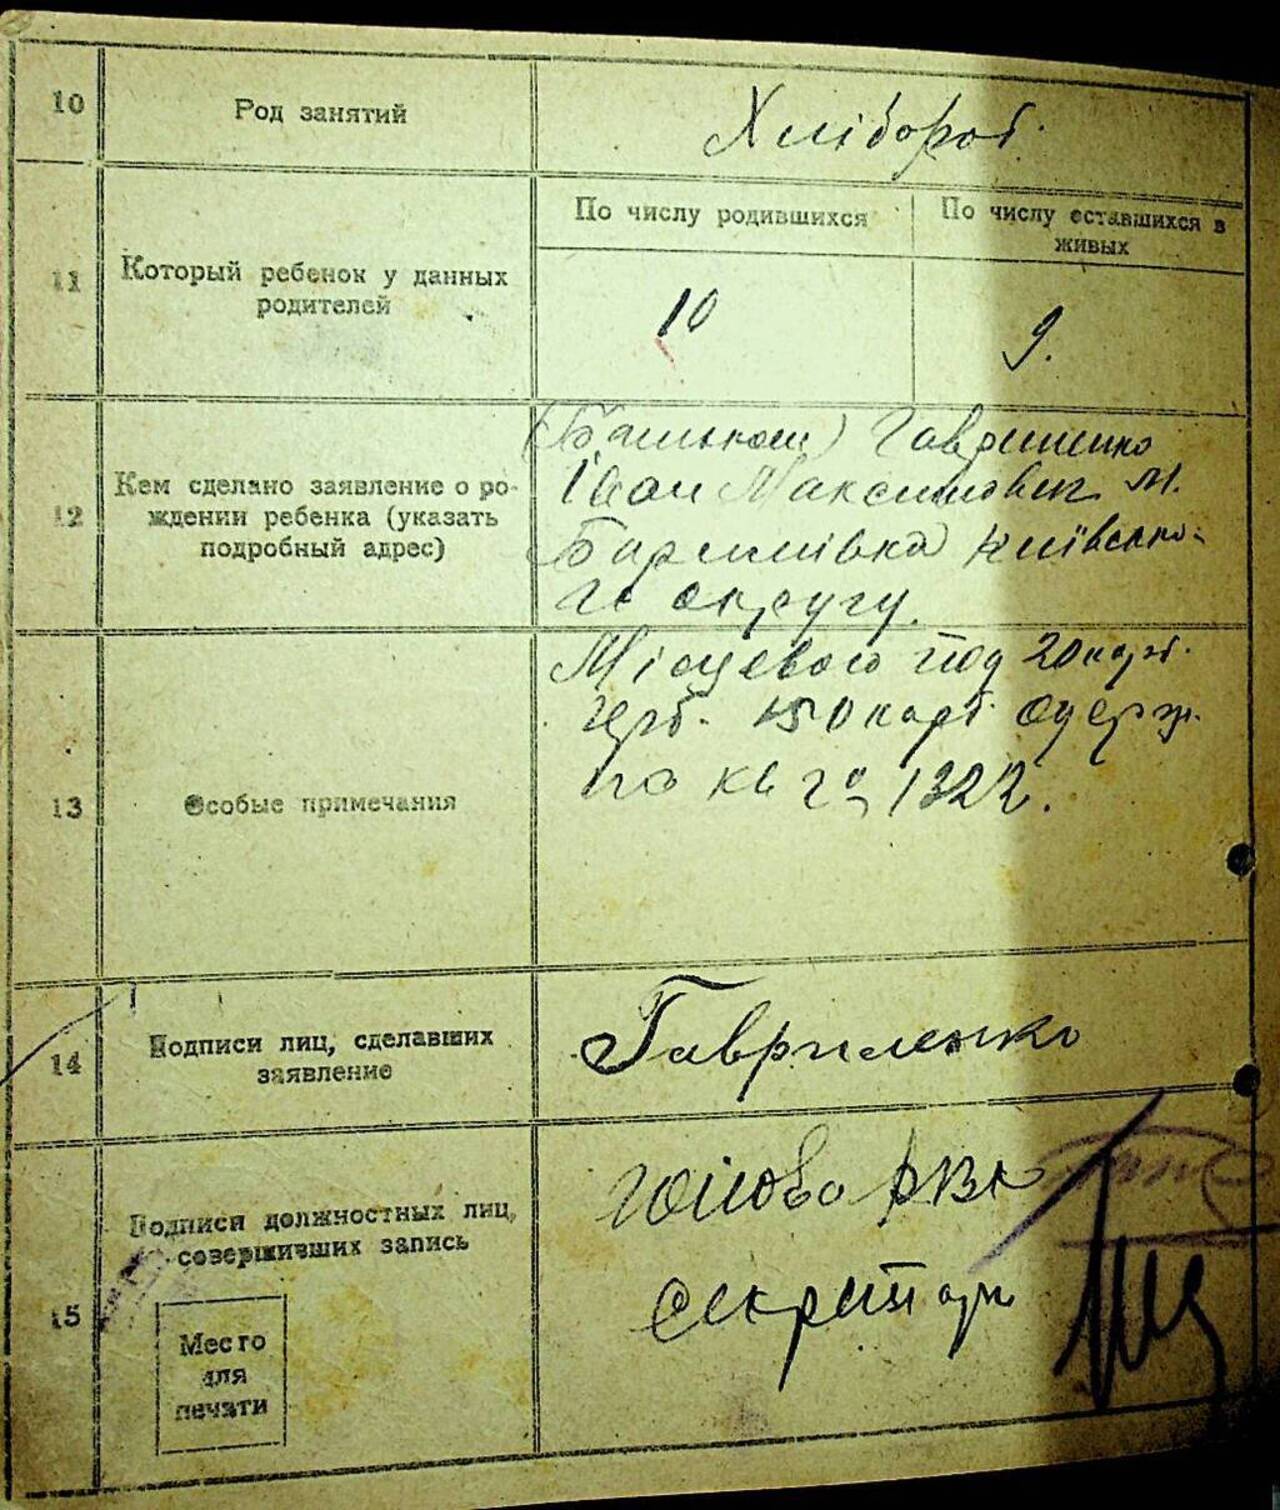 10 Род занятий Хлібороб.
11 Который ребенок у данных
родителей
По числу родившихся
10
По числу оставшихся в
живых
9.
12 Кем сделано заявление о ро-
ждении ребенка (указать
подробный адрес)
(Батьком) Гавриленко
Іван Максимович м.
Баришівка Київсько-
го округу.
13 Особые примечания
Місцевого под 20 карб.
герб. 150 карб одерж.
по кв го 1322.
14 Подписи лиц, сделавших
заявление
Гавриленко
15 Подписи должностных лиц,
совершивших запись
Место
для
печати
Голова РВК
Секретарь